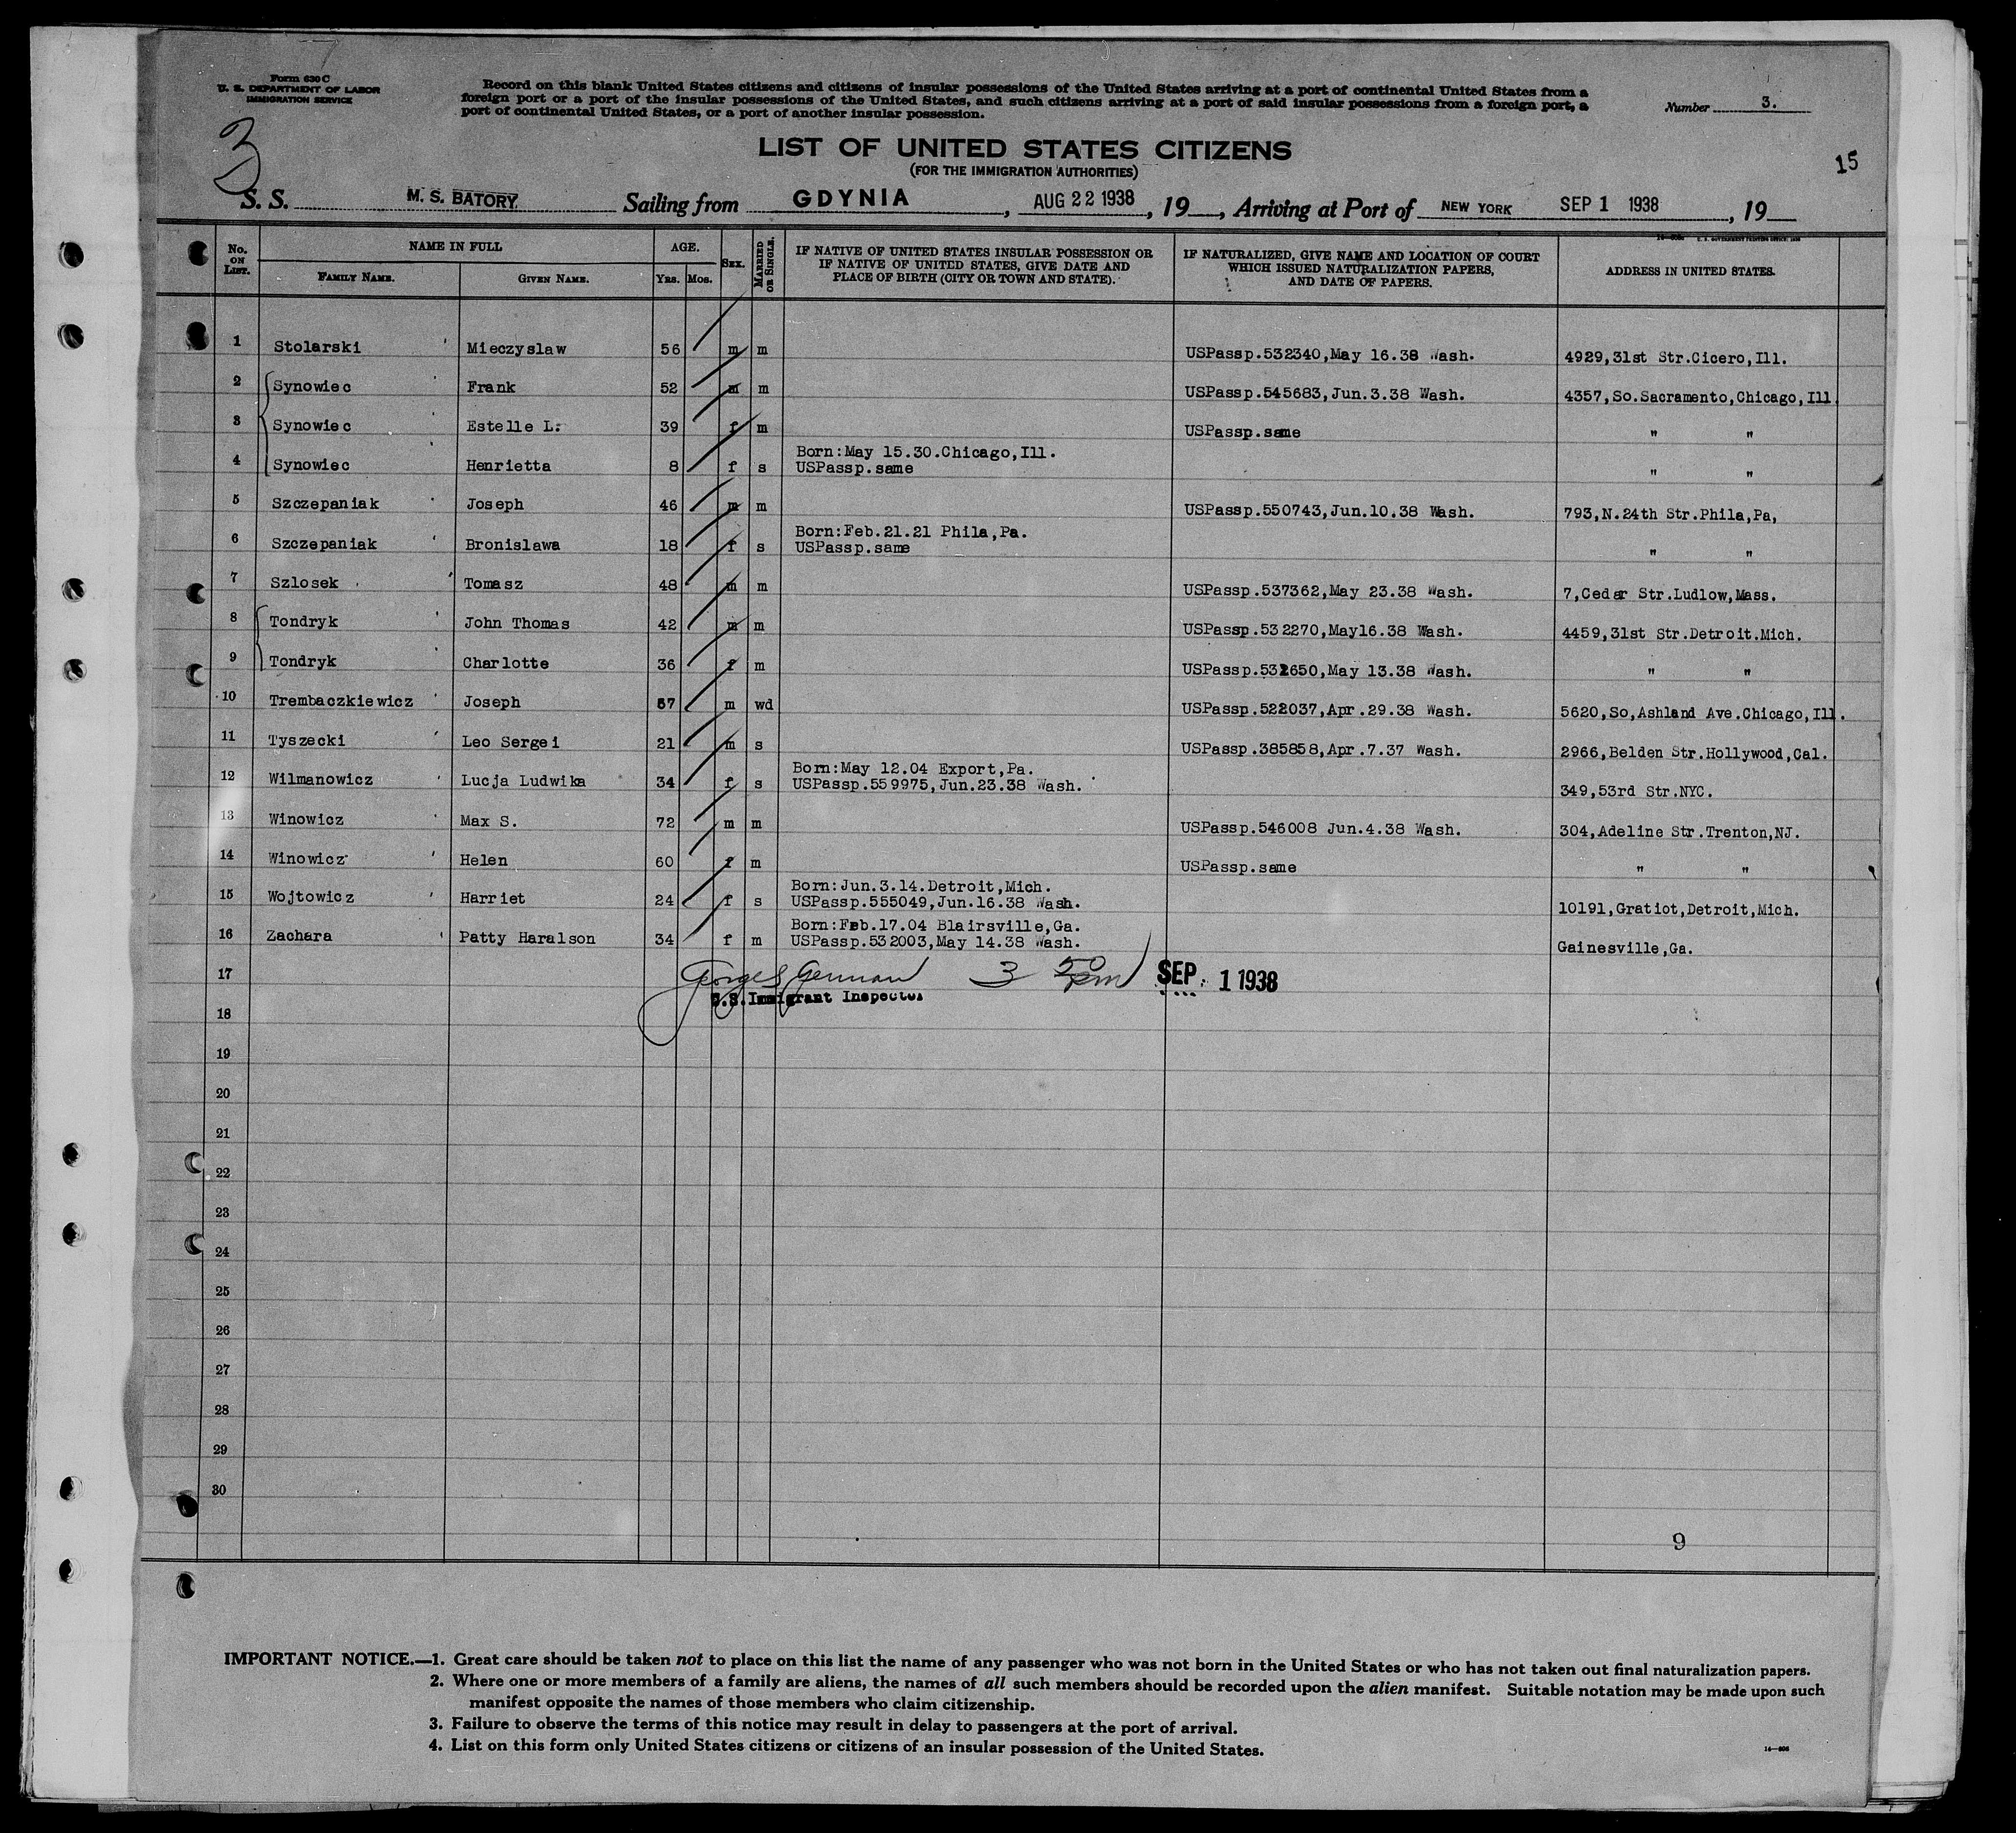 Form 630 C
U. S. DEPARTMENT OF LABOR
IMMIGRATION SERVICE
Record on this blank United States citizens and citizens of insular possessions of the United States arriving at a port of continental United States from a
foreign port or a port of the insular possessions of the United States, and such citizens arriving at a port of said insular possessions from a foreign port, a
port of continental United States, or a port of another insular possession.
Number 3.
3
LIST OF UNITED STATES CITIZENS
(FOR THE IMMIGRATION AUTHORITIES)
15
S. S. M. S. BATORY Sailing from GDYNIA, AUG 22 1938, 19__, Arriving at Port of NEW YORK SEP 1 1938, 19__
No. ON LIST. NAME IN FULL AGE. SEX. MARRIED OR SINGLE. IF NATIVE OF UNITED STATES INSULAR POSSESSION OR IF NATIVE OF UNITED STATES, GIVE DATE AND PLACE OF BIRTH (CITY OR TOWN AND STATE). IF NATURALIZED, GIVE NAME AND LOCATION OF COURT WHICH ISSUED NATURALIZATION PAPERS, AND DATE OF PAPERS. ADDRESS IN UNITED STATES.
FAMILY NAME. GIVEN NAME. YRS. MOS.
1 Stolarski Mieczyslaw 56 m m USPassp.532340,May 16.38 Wash. 4929,31st Str.Cicero,Ill.
2 Synowiec Frank 52 m m USPassp.545683,Jun.3.38 Wash. 4357,So.Sacramento,Chicago,Ill.
3 Synowiec Estelle L. 39 f m USPassp.same " "
4 Synowiec Henrietta 8 f s Born:May 15.30.Chicago,Ill. " "
USPassp.same
5 Szczepaniak Joseph 46 m m USPassp.550743,Jun.10.38 Wash. 793,N.24th Str.Phila,Pa,
6 Szczepaniak Bronislawa 18 f s Born:Feb.21.21 Phila,Pa. " "
USPassp.same
7 Szlosek Tomasz 48 m m USPassp.537362,May 23.38 Wash. 7,Cedar Str.Ludlow,Mass.
8 Tondryk John Thomas 42 m m USPassp.532270,May16.38 Wash. 4459,31st Str.Detroit.Mich.
9 Tondryk Charlotte 36 f m May 13.38 Wash. " "
10 Trembaczkiewicz Joseph 57 m wd USPassp.522037,Apr.29.38 Wash. 5620,So,Ashland Ave.Chicago,Ill.
11 Tyszecki Leo Sergei 21 m s USPassp.385858,Apr.7.37 Wash. 2966,Belden Str.Hollywood,Cal.
12 Wilmanowicz Lucja Ludwika 34 f s Born:May 12.04 Export,Pa. 349,53rd Str.NYC.
USPassp.559975,Jun.23.38 Wash.
13 Winowicz Max S. 72 m m USPassp.546008 Jun.4.38 Wash. 304,Adeline Str.Trenton,NJ.
14 Winowicz Helen 60 f m USPassp.same " "
15 Wojtowicz Harriet 24 f s Born:Jun.3.14.Detroit,Mich. 10191,Gratiot,Detroit,Mich.
USPassp.555049,Jun.16.38 Wash.
16 Zachara Patty Haralson 34 f m Born:Feb.17.04 Blairsville,Ga. Gainesville,Ga.
USPassp.532003,May 14.38 Wash.
17 3 50 pm SEP 1 1938
U.S. Immigrant Inspector
18
19
20
21
22
23
24
25
26
27
28
29
30
9
IMPORTANT NOTICE.—1. Great care should be taken not to place on this list the name of any passenger who was not born in the United States or who has not taken out final naturalization papers.
2. Where one or more members of a family are aliens, the names of all such members should be recorded upon the alien manifest. Suitable notation may be made upon such
manifest opposite the names of those members who claim citizenship.
3. Failure to observe the terms of this notice may result in delay to passengers at the port of arrival.
4. List on this form only United States citizens or citizens of an insular possession of the United States.